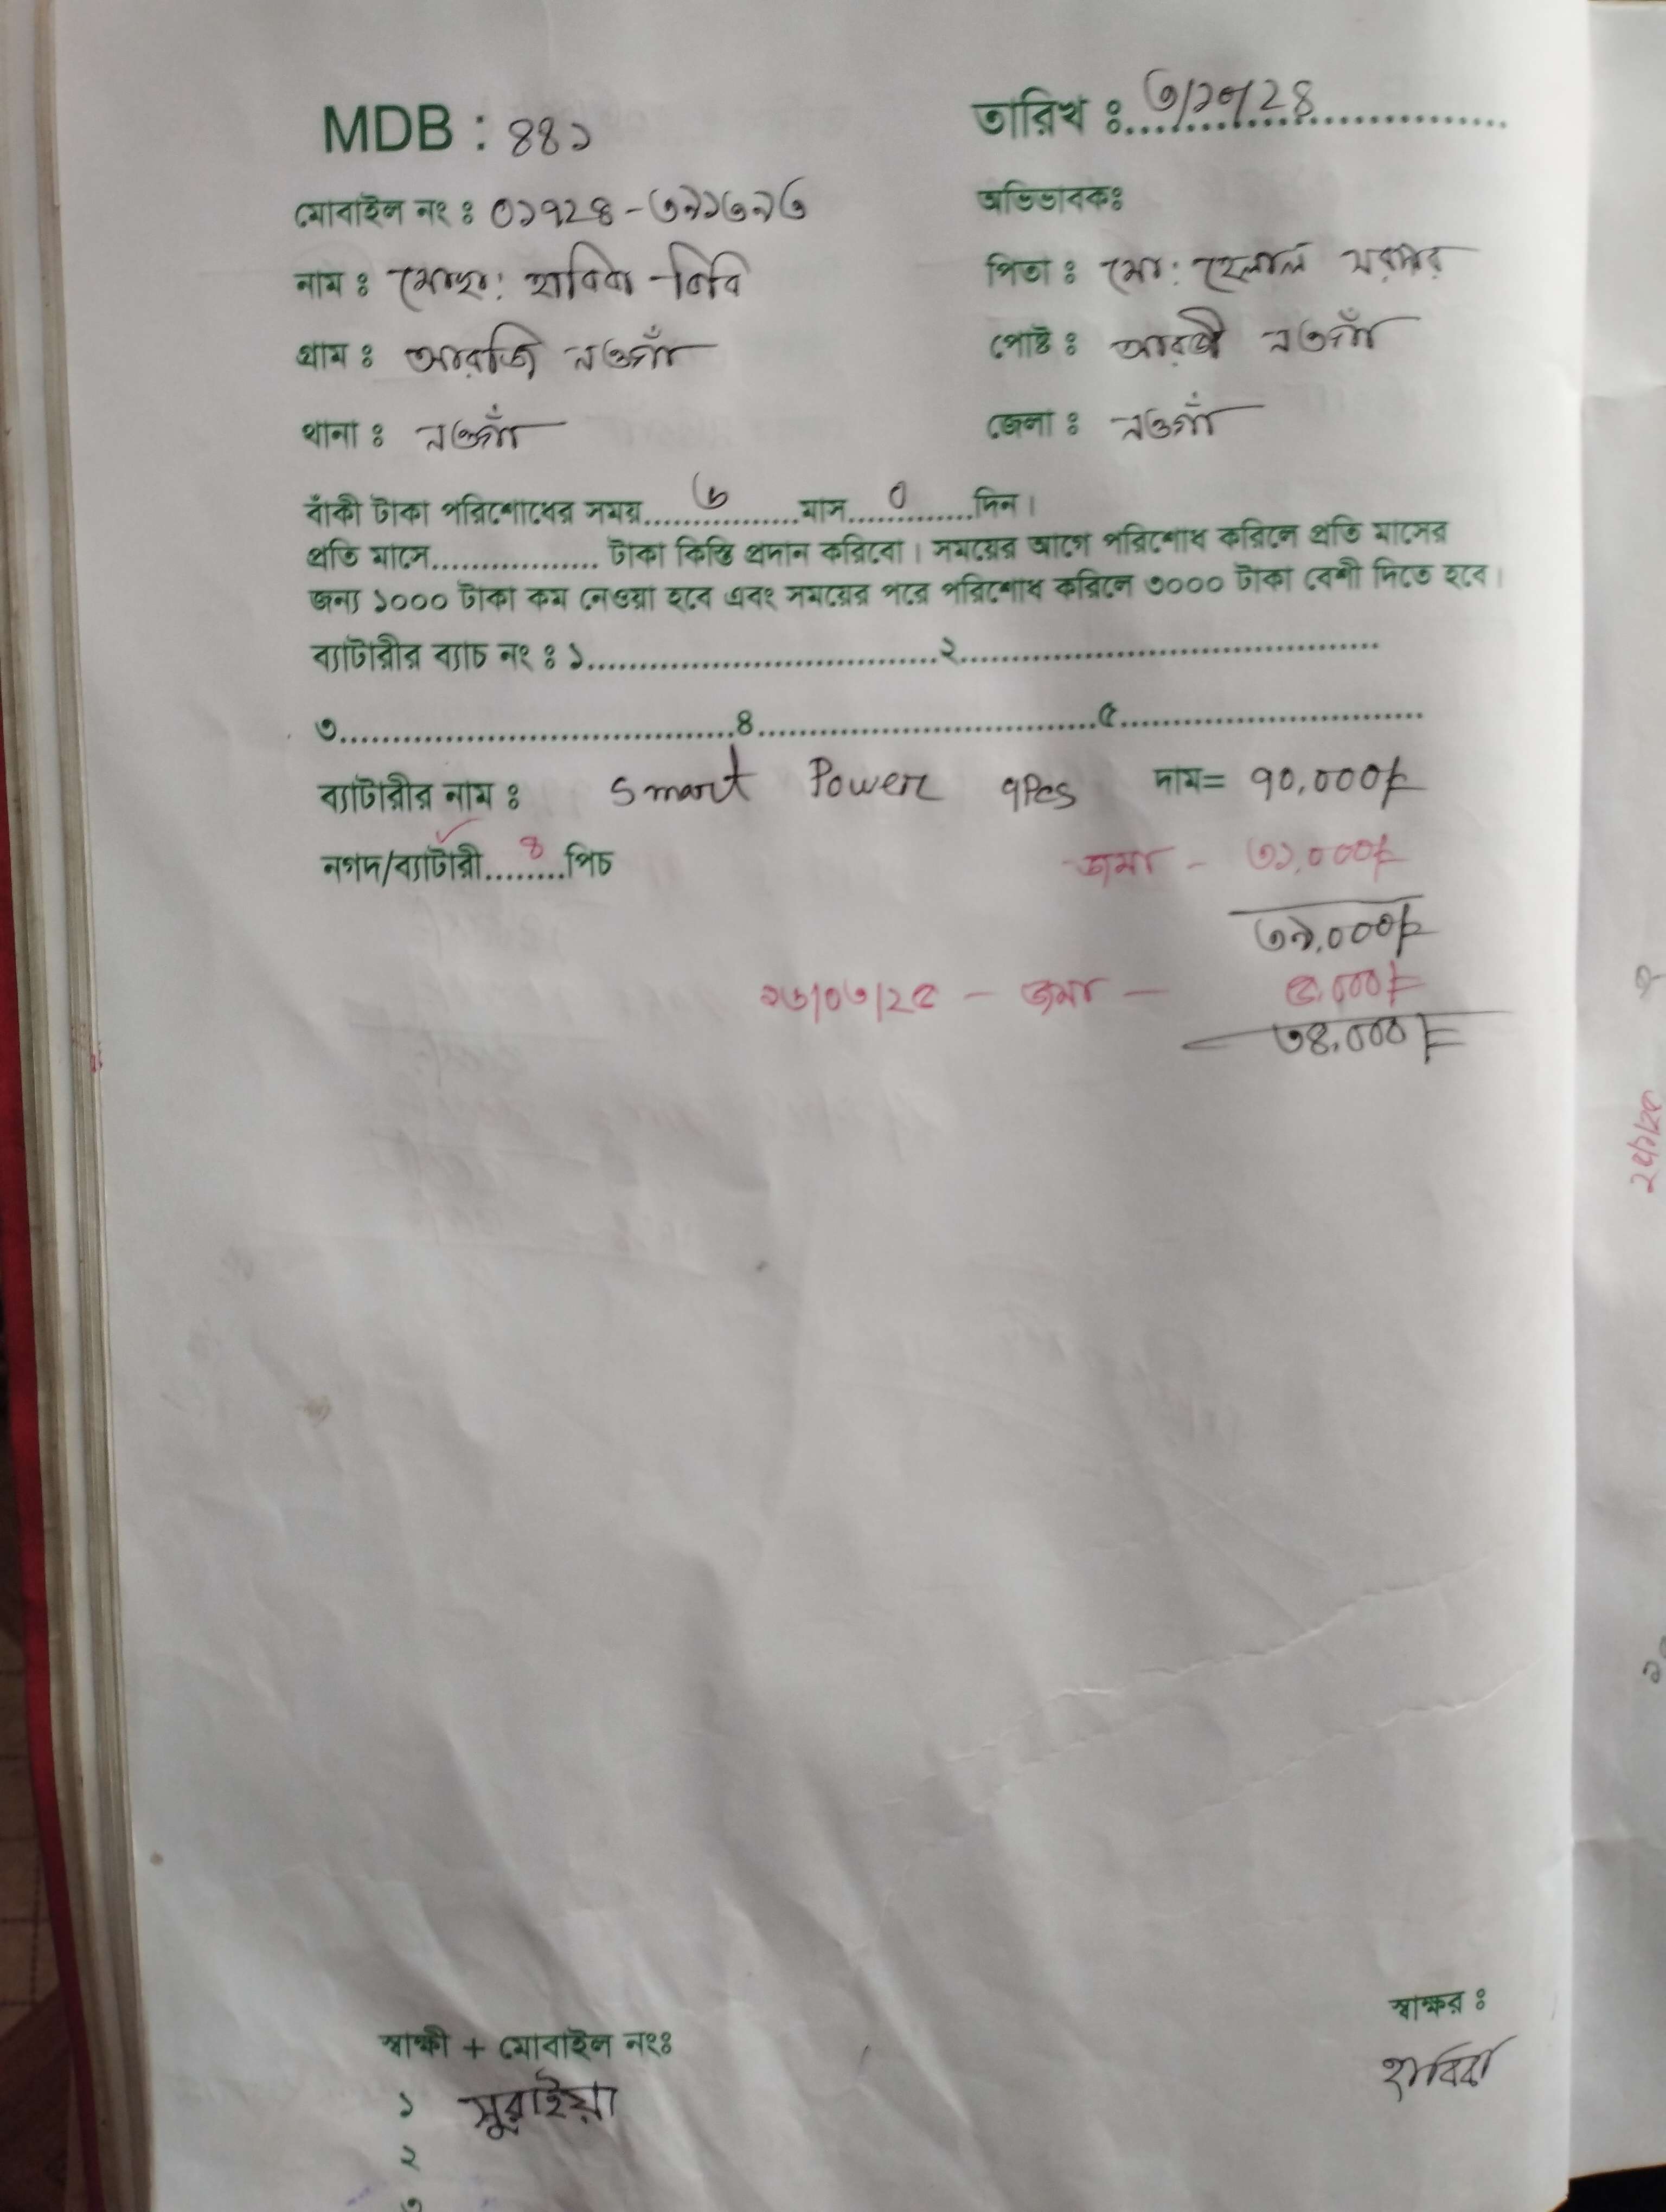 MDB : ৪৪১ তারিখ ঃ ৩/১০/২৪
মোবাইল নং ঃ ০১৭২৪-৩৯১৬৯৬ অভিভাবকঃ
নাম ঃ মোছা: হাবিবা বিবি পিতা ঃ মো: হেলাল সরদার
গ্রাম ঃ আরজি নওগাঁ পোষ্ট ঃ আরজী নওগাঁ
থানা ঃ নওগাঁ জেলা ঃ নওগাঁ
বাঁকী টাকা পরিশোধের সময়.......৬.......মাস.....০......দিন।
প্রতি মাসে.................. টাকা কিস্তি প্রদান করিবো। সময়ের আগে পরিশোধ করিলে প্রতি মাসের
জন্য ১০০০ টাকা কম নেওয়া হবে এবং সময়ের পরে পরিশোধ করিলে ৩০০০ টাকা বেশী দিতে হবে।
ব্যাটারীর ব্যাচ নং ঃ ১..................................২..........................................
৩......................................৪..................................৫..............................
ব্যাটারীর নাম ঃ Smart Power ৭Pcs দাম= ৭০,০০০/=
নগদ/ব্যাটারী....৪....পিচ জমা - ৩১,০০০/=
৩৯,০০০/=
২৬/০৩/২৫ - জমা - ৫,০০০/=
৩৪,০০০/=
স্বাক্ষর ঃ
হাবিবা
স্বাক্ষী + মোবাইল নংঃ
১ সুরাইয়া
২
৩